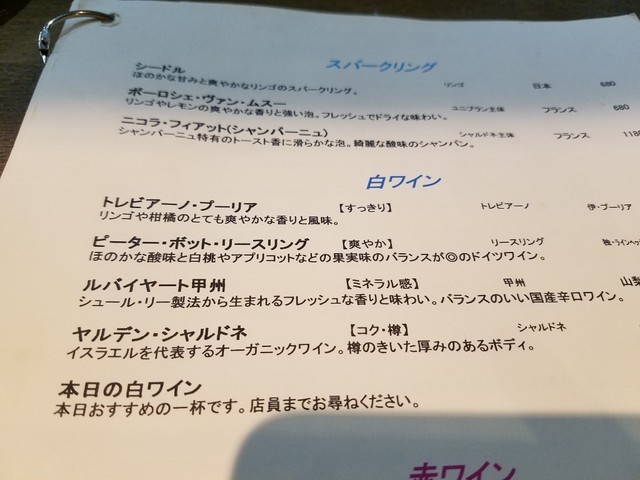 スパークリング
シードル リンゴ 日本 680
ほのかな甘みと爽やかなリンゴのスパークリング。
ボーロシェ・ヴァン・ムスー ユニブラン主体 フランス 680
リンゴやレモンの爽やかな香りと強い泡。フレッシュでドライな味わい。
ニコラ・フィアット(シャンパーニュ) シャルドネ主体 フランス 118
シャンパーニュ特有のトースト香に滑らかな泡。綺麗な酸味のシャンパン。
白ワイン
トレビアーノ・プーリア 【すっきり】 トレビアーノ 伊・プーリア
リンゴや柑橘のとても爽やかな香りと風味。
ピーター・ポット・リースリング 【爽やか】 リースリング 独・ラインヘッ
ほのかな酸味と白桃やアプリコットなどの果実味のバランスが◎のドイツワイン。
ルバイヤート甲州 【ミネラル感】 甲州 山梨
シュール・リー製法から生まれるフレッシュな香りと味わい。バランスのいい国産辛口ワイン。
ヤルデン・シャルドネ 【コク・樽】 シャルドネ
イスラエルを代表するオーガニックワイン。樽のきいた厚みのあるボディ。
本日の白ワイン
本日おすすめの一杯です。店員までお尋ねください。
赤ワイン